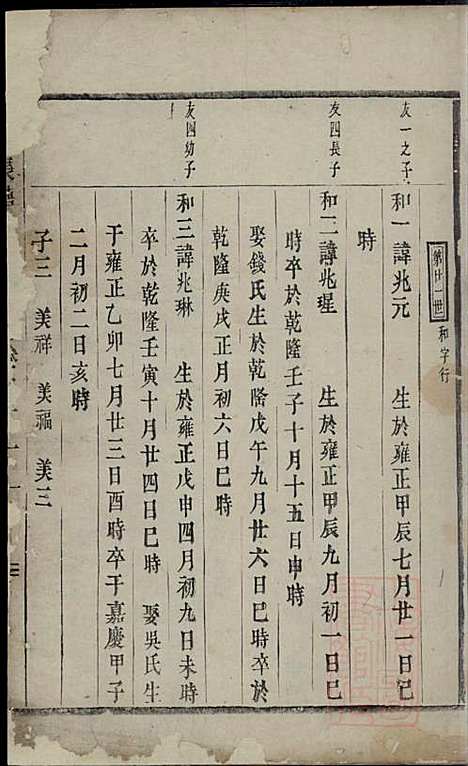 第廿一世 和字行
友一之子
和一諱兆元 生於雍正甲辰七月廿一日巳
時
友四長子
和二諱兆瑆 生於雍正甲辰九月初一日巳
時卒於乾隆壬子十月十五日申時
娶錢氏生於乾隆戊午九月廿六日巳時卒於
乾隆庚戌正月初六日巳時
友四幼子
和三諱兆琳 生於雍正戊申四月初九日未時
卒於乾隆壬寅十月廿四日巳時 娶吳氏生
于雍正乙卯七月廿三日酉時卒于嘉慶甲子
二月初二日亥時
子三 美祥 美福 美三